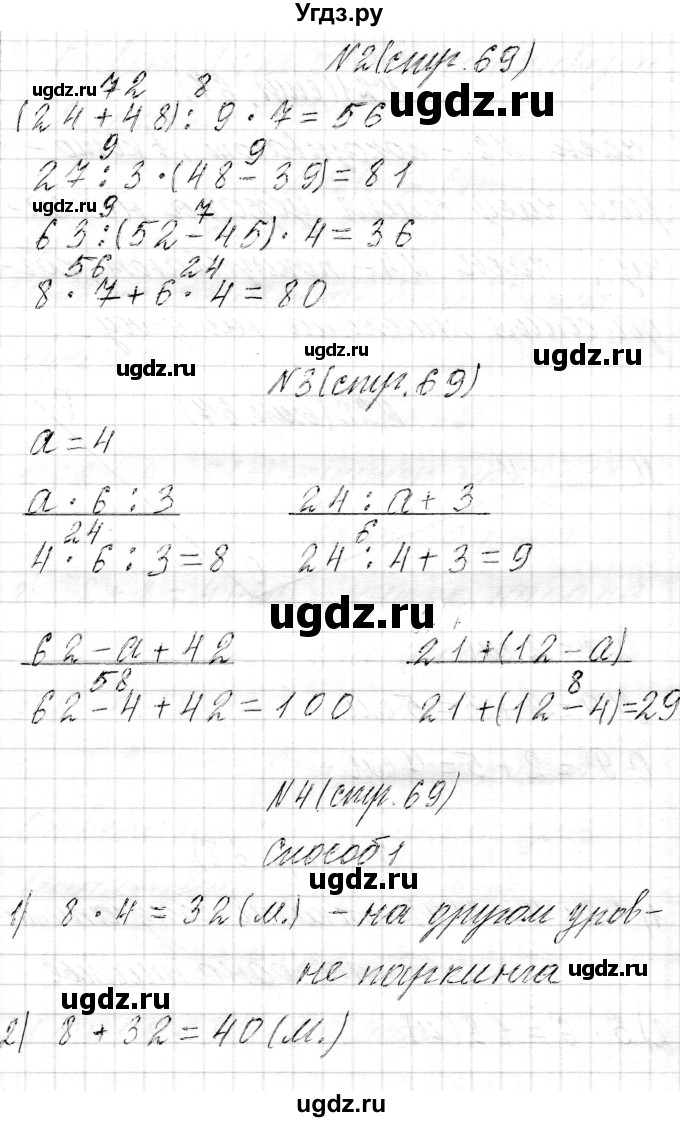 Угдз.ру
№2(стр. 69)
ugdz.ru
72 8
ugdz.ru
(24+48):9·7=56
9 9
27:3·(48-39)=81
ugdz.ru
9 7
63:(52-45)·4=36
56 24
8·7+6·4=80
ugdz.ru ugdz.ru ugdz.ru
№3(стр. 69)
a=4
a·6:3 24:a+3
24 6
4·6:3=8 24:4+3=9
ugdz.ru
62-a+42 21+(12-a)
58 8
62-4+42=100 21+(12-4)=29
№4(стр. 69)
Способ 1
ugdz.ru
1) 8·4=32(м.) - на другом уров-
не паркинга ugdz.ru
ugdz.ru
2) 8+32=40(м.)
ugdz.ru